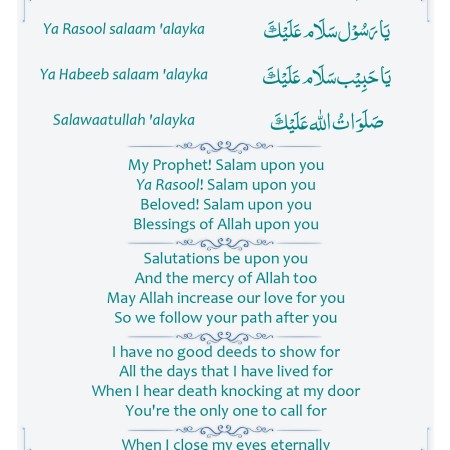 Ya Rasool salaam 'alayka يَا رَسُوْل سَلَام عَلَيْكَ
Ya Habeeb salaam 'alayka يَا حَبِيْب سَلَام عَلَيْكَ
Salawaatullah 'alayka صَلَوَاتُ الله عَلَيْكَ
My Prophet! Salam upon you
Ya Rasool! Salam upon you
Beloved! Salam upon you
Blessings of Allah upon you
Salutations be upon you
And the mercy of Allah too
May Allah increase our love for you
So we follow your path after you
I have no good deeds to show for
All the days that I have lived for
When I hear death knocking at my door
You're the only one to call for
When I close my eyes eternally